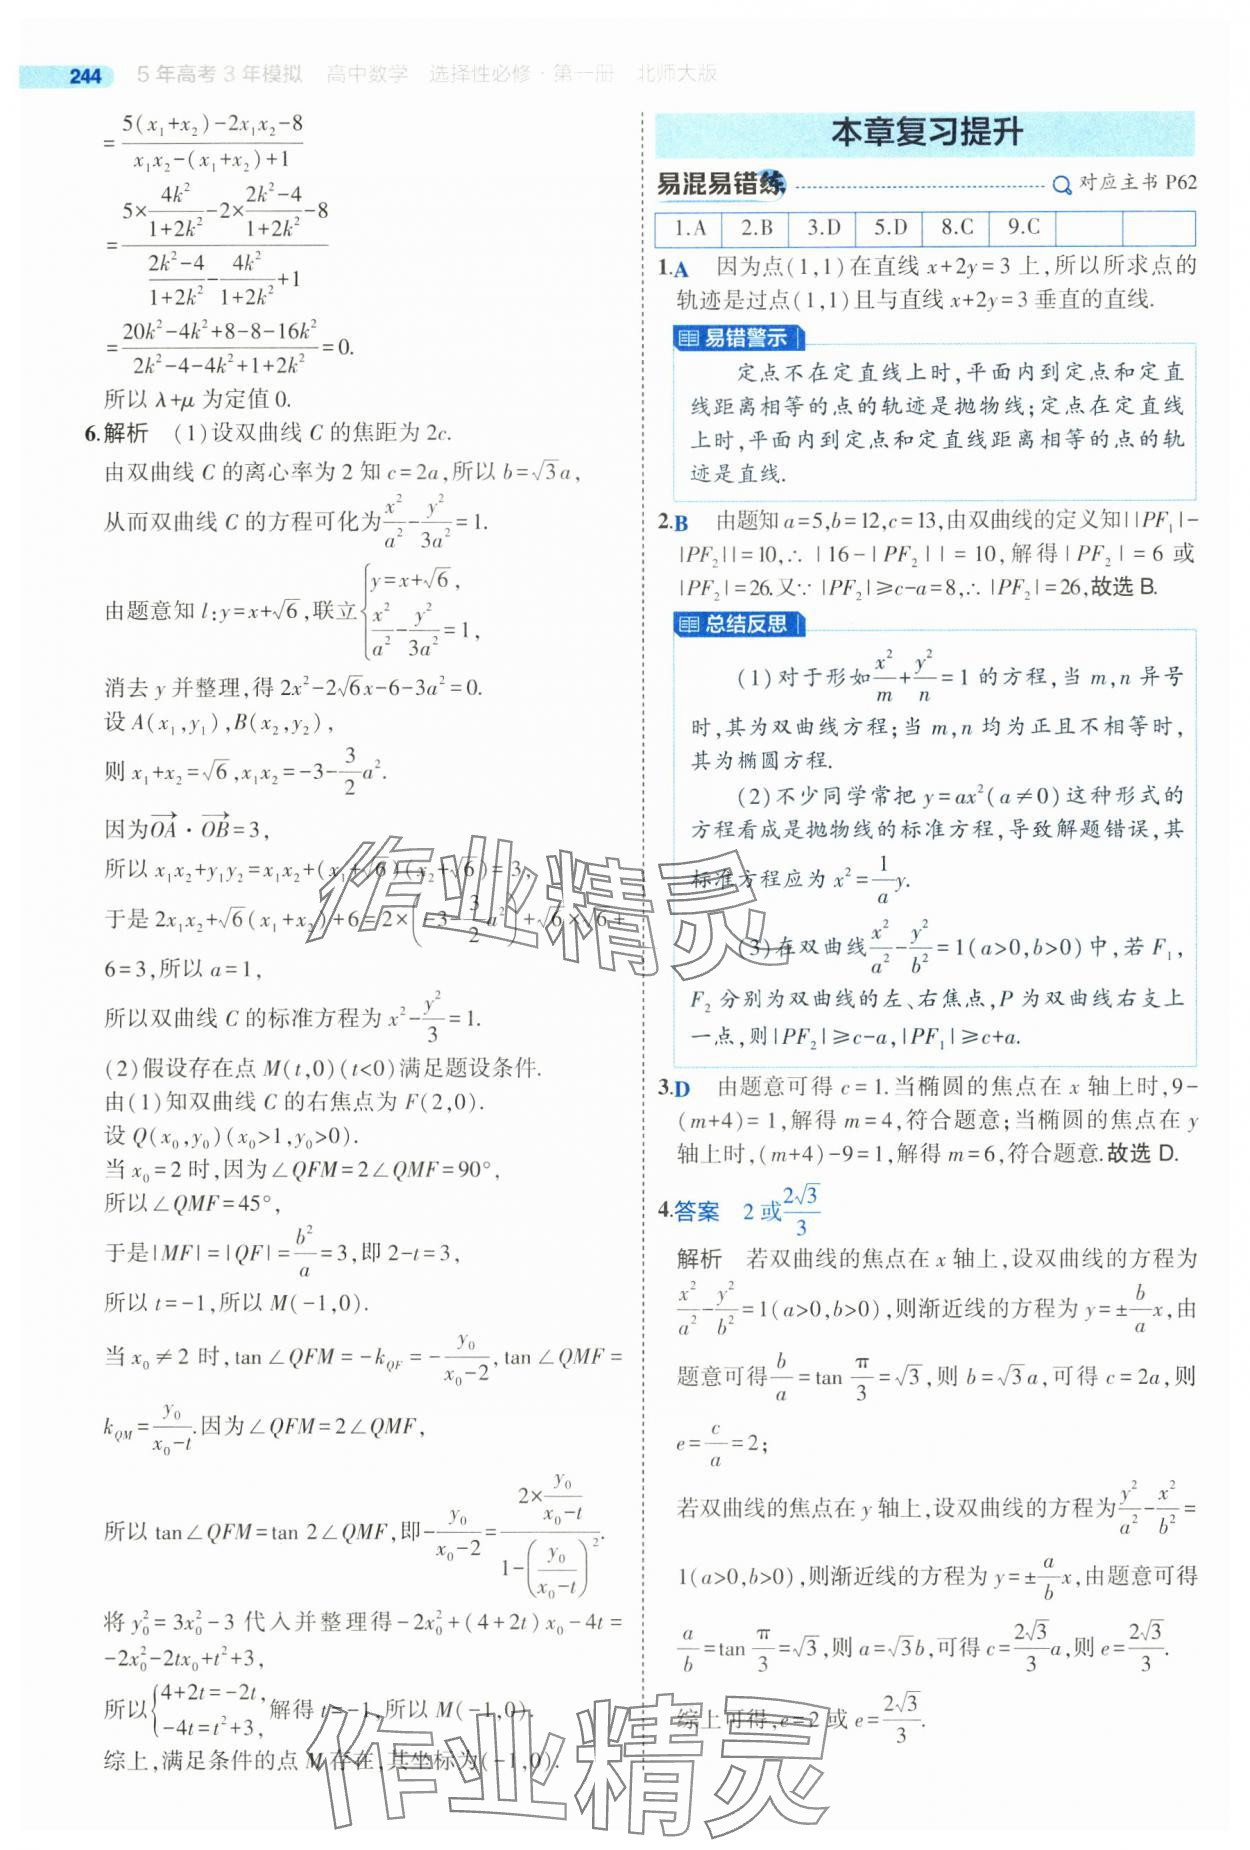 244 5年高考3年模拟 高中数学 选择性必修·第一册 北师大版
=\frac{5(x₁+x₂)-2x₁x₂-8}{x₁x₂-(x₁+x₂)+1}
=\frac{5×\frac{4k²}{1+2k²}-2×\frac{2k²-4}{1+2k²}-8}{\frac{2k²-4}{1+2k²}-\frac{4k²}{1+2k²}+1}
=\frac{20k²-4k²+8-8-16k²}{2k²-4-4k²+1+2k²}=0.
所以 λ+μ 为定值 0.
6.解析 (1)设双曲线 C 的焦距为 2c.
由双曲线 C 的离心率为 2 知 c=2a,所以 b=√3a,
从而双曲线 C 的方程可化为\frac{x²}{a²}-\frac{y²}{3a²}=1.
由题意知 l:y=x+√6,联立{y=x+√6, \frac{x²}{a²}-\frac{y²}{3a²}=1,
消去 y 并整理,得 2x²-2√6x-6-3a²=0.
设 A(x₁,y₁),B(x₂,y₂),
则 x₁+x₂=√6,x₁x₂=-3-\frac{3}{2}a².
因为\overrightarrow{OA}·\overrightarrow{OB}=3,
所以 x₁x₂+y₁y₂=x₁x₂+(x₁+√6)(x₂+√6)=3,
于是 2x₁x₂+√6(x₁+x₂)+6=2×(-3-\frac{3}{2}a²)+√6×√6+
6=3,所以 a=1,
所以双曲线 C 的标准方程为 x²-\frac{y²}{3}=1.
(2)假设存在点 M(t,0)(t<0)满足题设条件.
由(1)知双曲线 C 的右焦点为 F(2,0).
设 Q(x₀,y₀)(x₀>1,y₀>0).
当 x₀=2 时,因为∠QFM=2∠QMF=90°,
所以∠QMF=45°,
于是|MF|=|QF|=\frac{b²}{a}=3,即 2-t=3,
所以 t=-1,所以 M(-1,0).
当 x₀≠2 时,tan∠QFM=-k_{QF}=-\frac{y₀}{x₀-2},tan∠QMF=
k_{QM}=\frac{y₀}{x₀-t}.因为∠QFM=2∠QMF,
所以 tan∠QFM=tan 2∠QMF,即-\frac{y₀}{x₀-2}=\frac{2×\frac{y₀}{x₀-t}}{1-(\frac{y₀}{x₀-t})²}.
将 y₀²=3x₀²-3 代入并整理得-2x₀²+(4+2t)x₀-4t=
-2x₀²-2tx₀+t²+3,
所以{4+2t=-2t, -4t=t²+3,解得 t=-1,所以 M(-1,0).
综上,满足条件的点 M 存在,其坐标为(-1,0).
本章复习提升
易混易错练 对应主书 P62
1.A 2.B 3.D 5.D 8.C 9.C
1.A 因为点(1,1)在直线 x+2y=3 上,所以所求点的
轨迹是过点(1,1)且与直线 x+2y=3 垂直的直线.
易错警示
定点不在定直线上时,平面内到定点和定直
线距离相等的点的轨迹是抛物线;定点在定直线
上时,平面内到定点和定直线距离相等的点的轨
迹是直线.
2.B 由题知 a=5,b=12,c=13,由双曲线的定义知||PF₁|-
|PF₂||=10,∴|16-|PF₂||=10,解得|PF₂|=6 或
|PF₂|=26.又∵|PF₂|≥c-a=8,∴|PF₂|=26,故选 B.
总结反思
(1)对于形如\frac{x²}{m}+\frac{y²}{n}=1 的方程,当 m,n 异号
时,其为双曲线方程;当 m,n 均为正且不相等时,
其为椭圆方程.
(2)不少同学常把 y=ax²(a≠0)这种形式的
方程看成是抛物线的标准方程,导致解题错误,其
标准方程应为 x²=\frac{1}{a}y.
(3)在双曲线\frac{x²}{a²}-\frac{y²}{b²}=1(a>0,b>0)中,若 F₁,
F₂ 分别为双曲线的左、右焦点,P 为双曲线右支上
一点,则|PF₂|≥c-a,|PF₁|≥c+a.
3.D 由题意可得 c=1.当椭圆的焦点在 x 轴上时,9-
(m+4)=1,解得 m=4,符合题意;当椭圆的焦点在 y
轴上时,(m+4)-9=1,解得 m=6,符合题意.故选 D.
4.答案 2 或\frac{2√3}{3}
解析 若双曲线的焦点在 x 轴上,设双曲线的方程为
\frac{x²}{a²}-\frac{y²}{b²}=1(a>0,b>0),则渐近线的方程为 y=±\frac{b}{a}x,由
题意可得\frac{b}{a}=tan\frac{π}{3}=√3,则 b=√3a,可得 c=2a,则
e=\frac{c}{a}=2;
若双曲线的焦点在 y 轴上,设双曲线的方程为\frac{y²}{a²}-\frac{x²}{b²}=
1(a>0,b>0),则渐近线的方程为 y=±\frac{a}{b}x,由题意可得
\frac{a}{b}=tan\frac{π}{3}=√3,则 a=√3b,可得 c=\frac{2√3}{3}a,则 e=\frac{2√3}{3}.
综上可得,e=2 或 e=\frac{2√3}{3}.
作业精灵
作业精灵